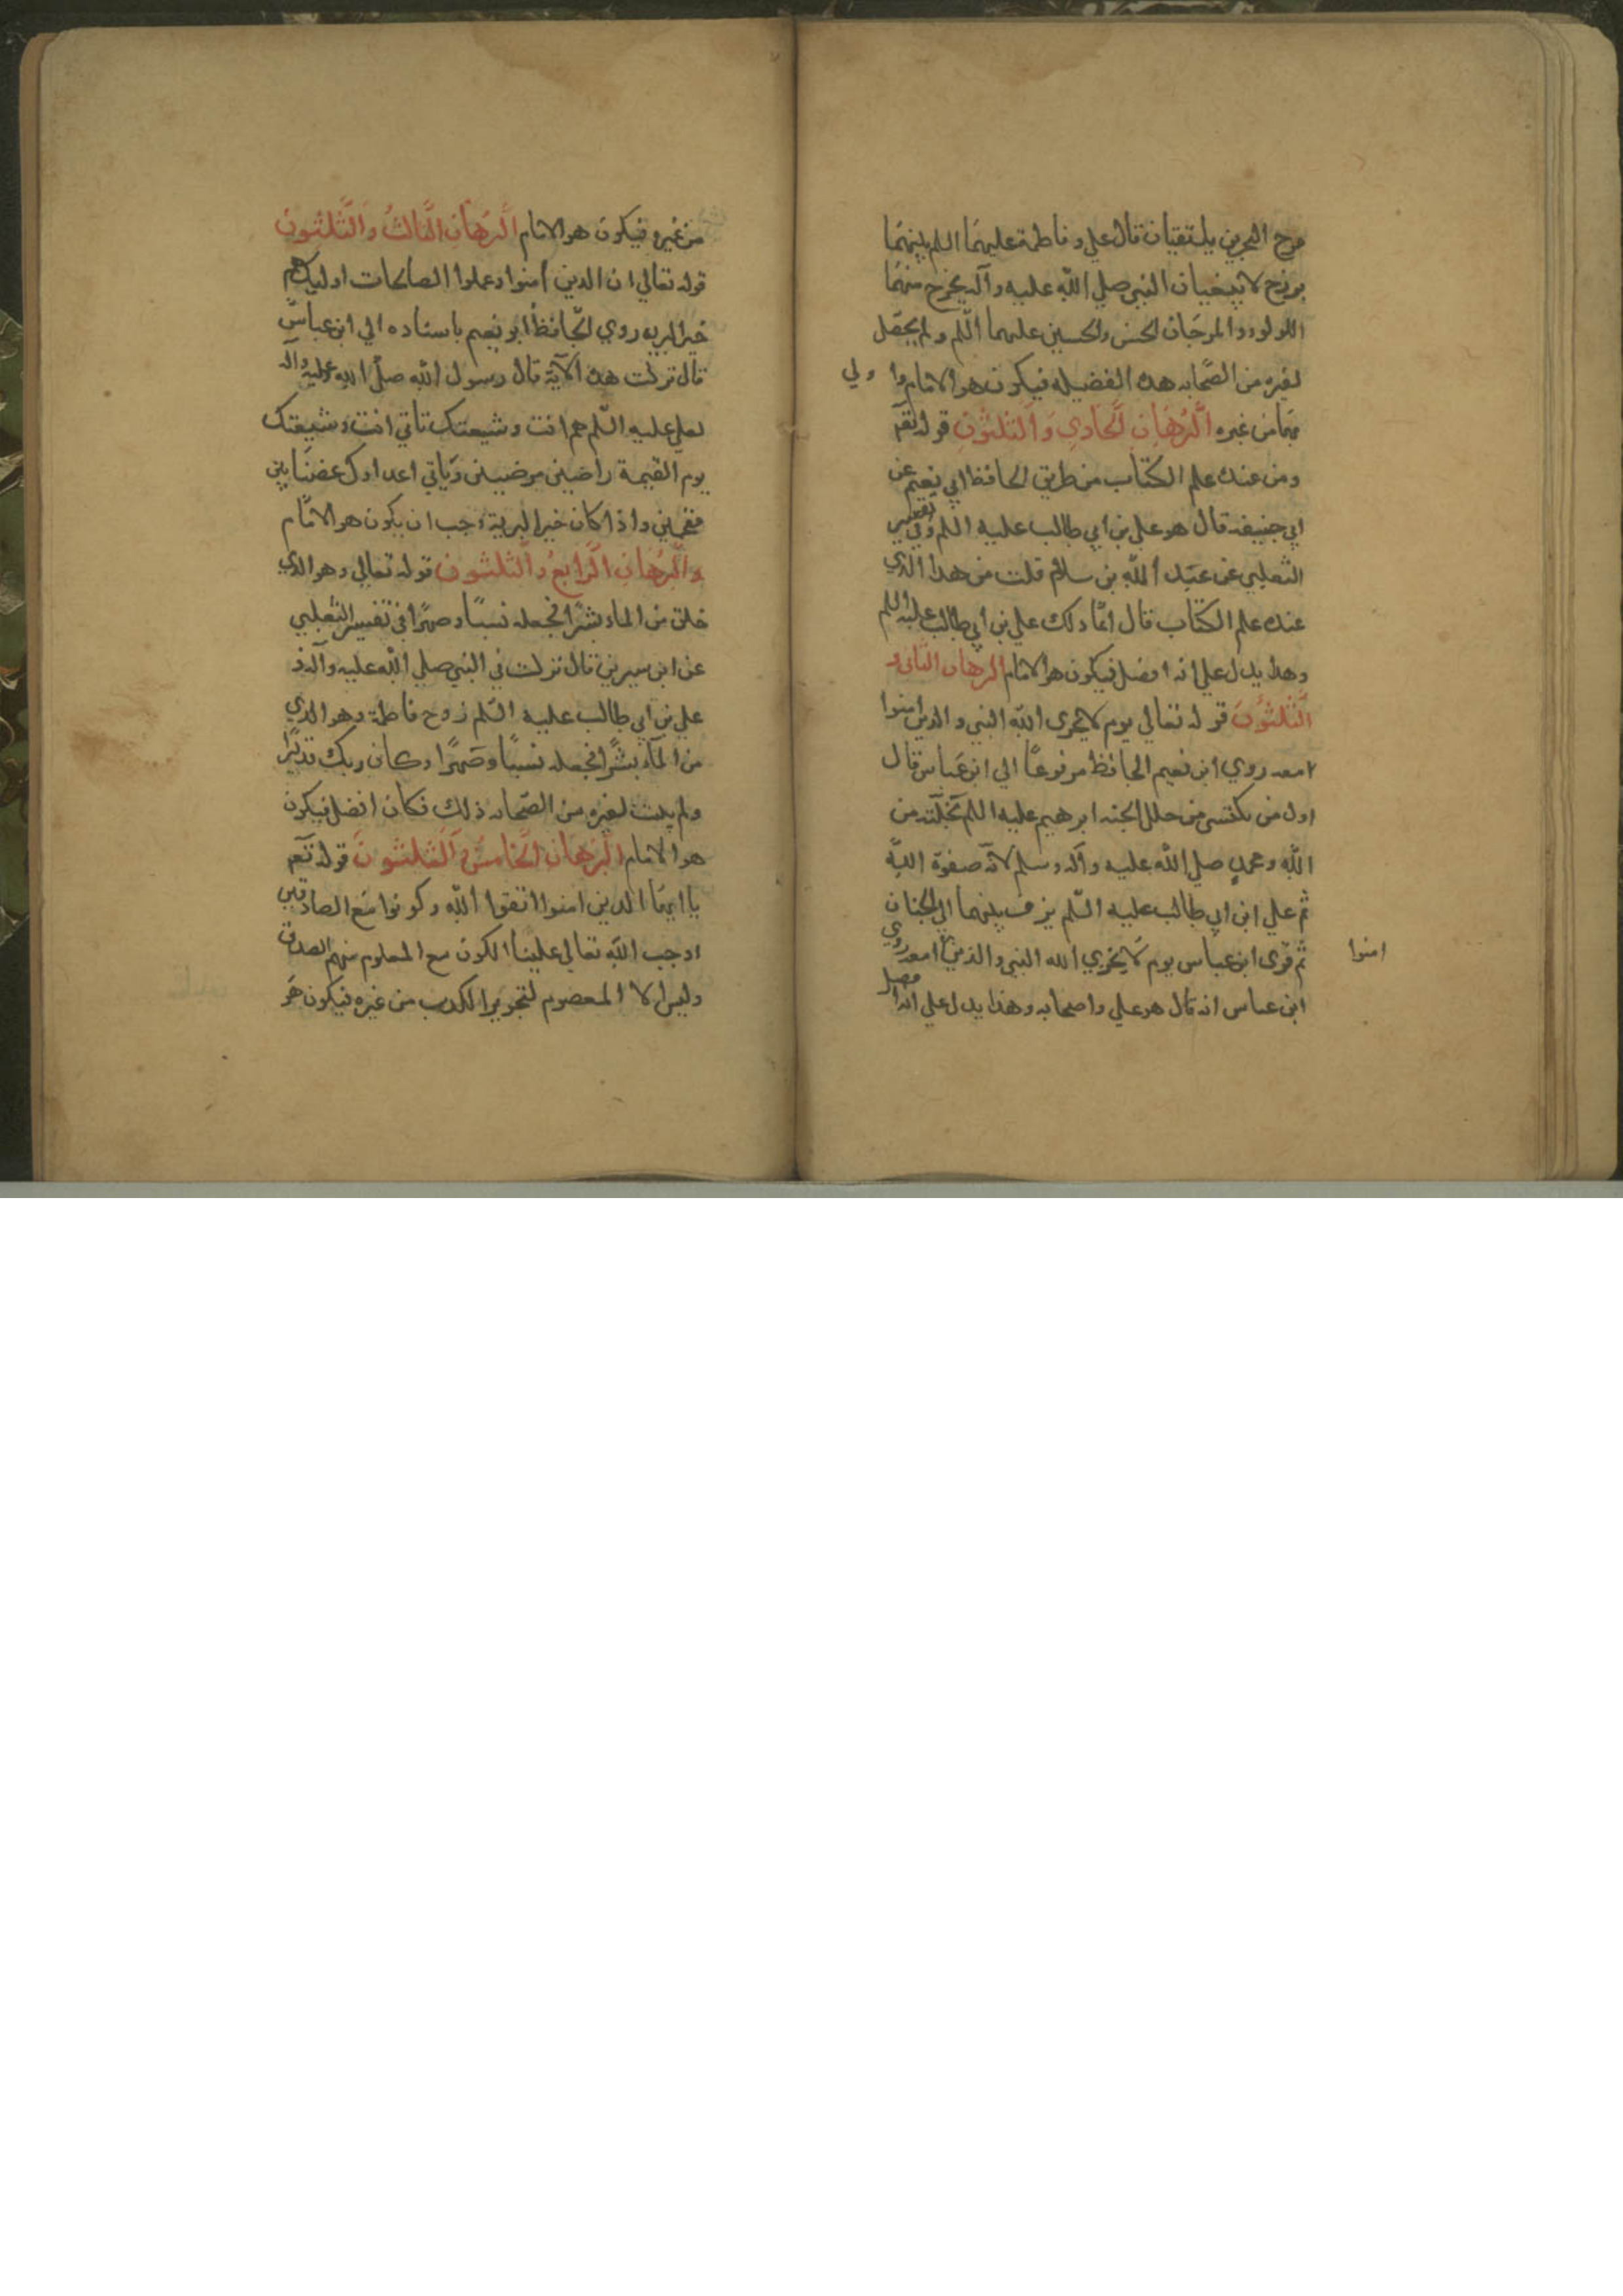 مرج البحرين يلتقيان قال علي وفاطمة عليهما السلم بينهما
برزخ لا يبغيان النبي صلي الله عليه وآله يخرج منهما
اللولوء والمرجان الحسن والحسين عليهما السّلم ولم يحصل
لغيره من الصّحابه هذه الفضيله فيكون هو الامام وا ولي
بها من غيره اَلْبُرْهَانُ الْحَادِي وَالثَّلثُونَ قوله تعم
ومن عنده علم الكتاب من طريق الحافظ ابي نعيم عن
ابي حنيفه قال هو علي بن ابي طالب عليه السلم وفي تفسير
الثعلبي عن عبد الله بن سلام قلت من هذا الذي
عنده علم الكتاب قال انما ذلك علي بن ابي طالب عليه السلم
وهذا يدل علي انه افضل فيكون هو الامام البرهان الثاني و
الثَّلثُونَ قوله تعالي يوم لا يخزي الله النبي والذين امنوا
معه روي ابن نعيم الحافظ مرفوعًا الي ابن عباس قال
اول من يكتسي من حلل الجنه ابرهيم عليه السلم بخلته من
الله ومحمد صلي الله عليه وآله وسلم لانّه صفوة اللّه
ثم علي ابن ابي طالب عليه السّلم يزف بينهما الي الجنان
ثم قري ابن عباس يوم لا يخزي الله النبي والذين امعه روي
امنوا
ابن عباس انه قال هو علي واصحابه وهذا يدل علي انه افضل
من غيره فيكون هو الامام اَلْبُرْهَانُ الثَّالثُ وَالثَّلثونَ
قوله تعالي ان الذين امنوا وعملوا الصالحات اوليك هم
خير البريه روي الحافظ ابو نعيم باسناده الي ابن عباس
قال نزلت هذه الآية قال رسول الله صلي الله عليه وآله
لعلي عليه السّلم هم انت وشيعتك تاتي انت وشيعتك
يوم القيمة راضين مرضيين وياتي اعداوك غضبابين
مقمحين واذا كان خير البرية وجب ان يكون هو الامام
والْبُرْهَانُ الرَّابعُ وَالثَّلثون قوله تعالي وهو الذي
خلق من الماء بشرًا فجعله نسبًا وصهرًا في تفسير الثعلبي
عن ابن سيرين قال نزلت في النبي صلي الله عليه وآله و
علي بن ابي طالب عليه السّلم زوج فاطمة وهو الذي
من المآء بشرًا فجعله نسبًا وصهرًا وكان ربك قديرًا
ولم يثبت لغيره من الصّحابه ذلك فكان افضل فيكون
هو الامام اَلْبُرْهَانُ الْخَامسُ وَالثَّلثونَ قوله تعم
يا ايها الذين امنوا اتقوا اللّه وكونوا مع الصادقين
اوجب اللّه تعالي علينا الكون مع المعلوم منهم الصدق
وليس الا المعصوم لتجويز الكذب من غيره فيكون هو